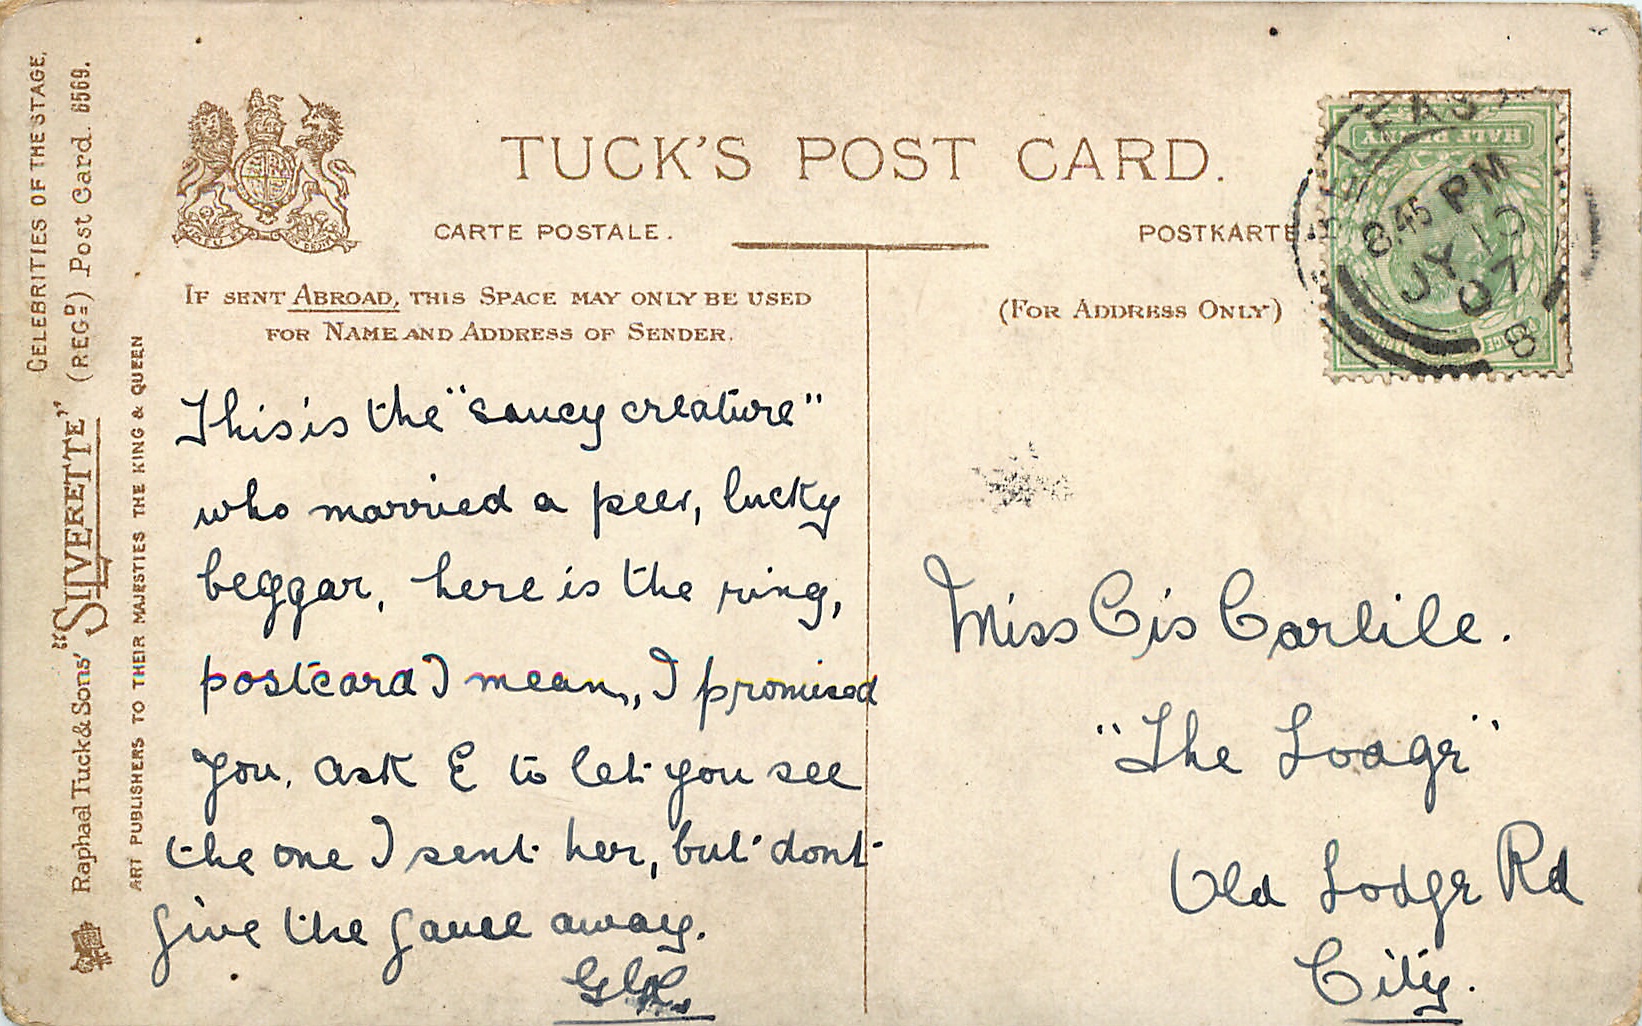 CELEBRITIES OF THE STAGE.
Raphael Tuck & Sons' "SILVERETTE" (REGD) Post Card. 6569.
ART PUBLISHERS TO THEIR MAJESTIES THE KING & QUEEN
TUCK'S POST CARD.
CARTE POSTALE.
POSTKARTE
IF SENT ABROAD, THIS SPACE MAY ONLY BE USED
FOR NAME AND ADDRESS OF SENDER.
(FOR ADDRESS ONLY)
HALF PENNY
BELFAST
8.45 PM
JY 10
07
8
This is the "saucy creature"
who married a peer, lucky
beggar, here is the ring,
postcard I mean, I promised
you. ask E to let you see
the one I sent her, but dont
give the game away.
Miss Cis Carlile.
"The Lodge"
Old Lodge Rd
City.